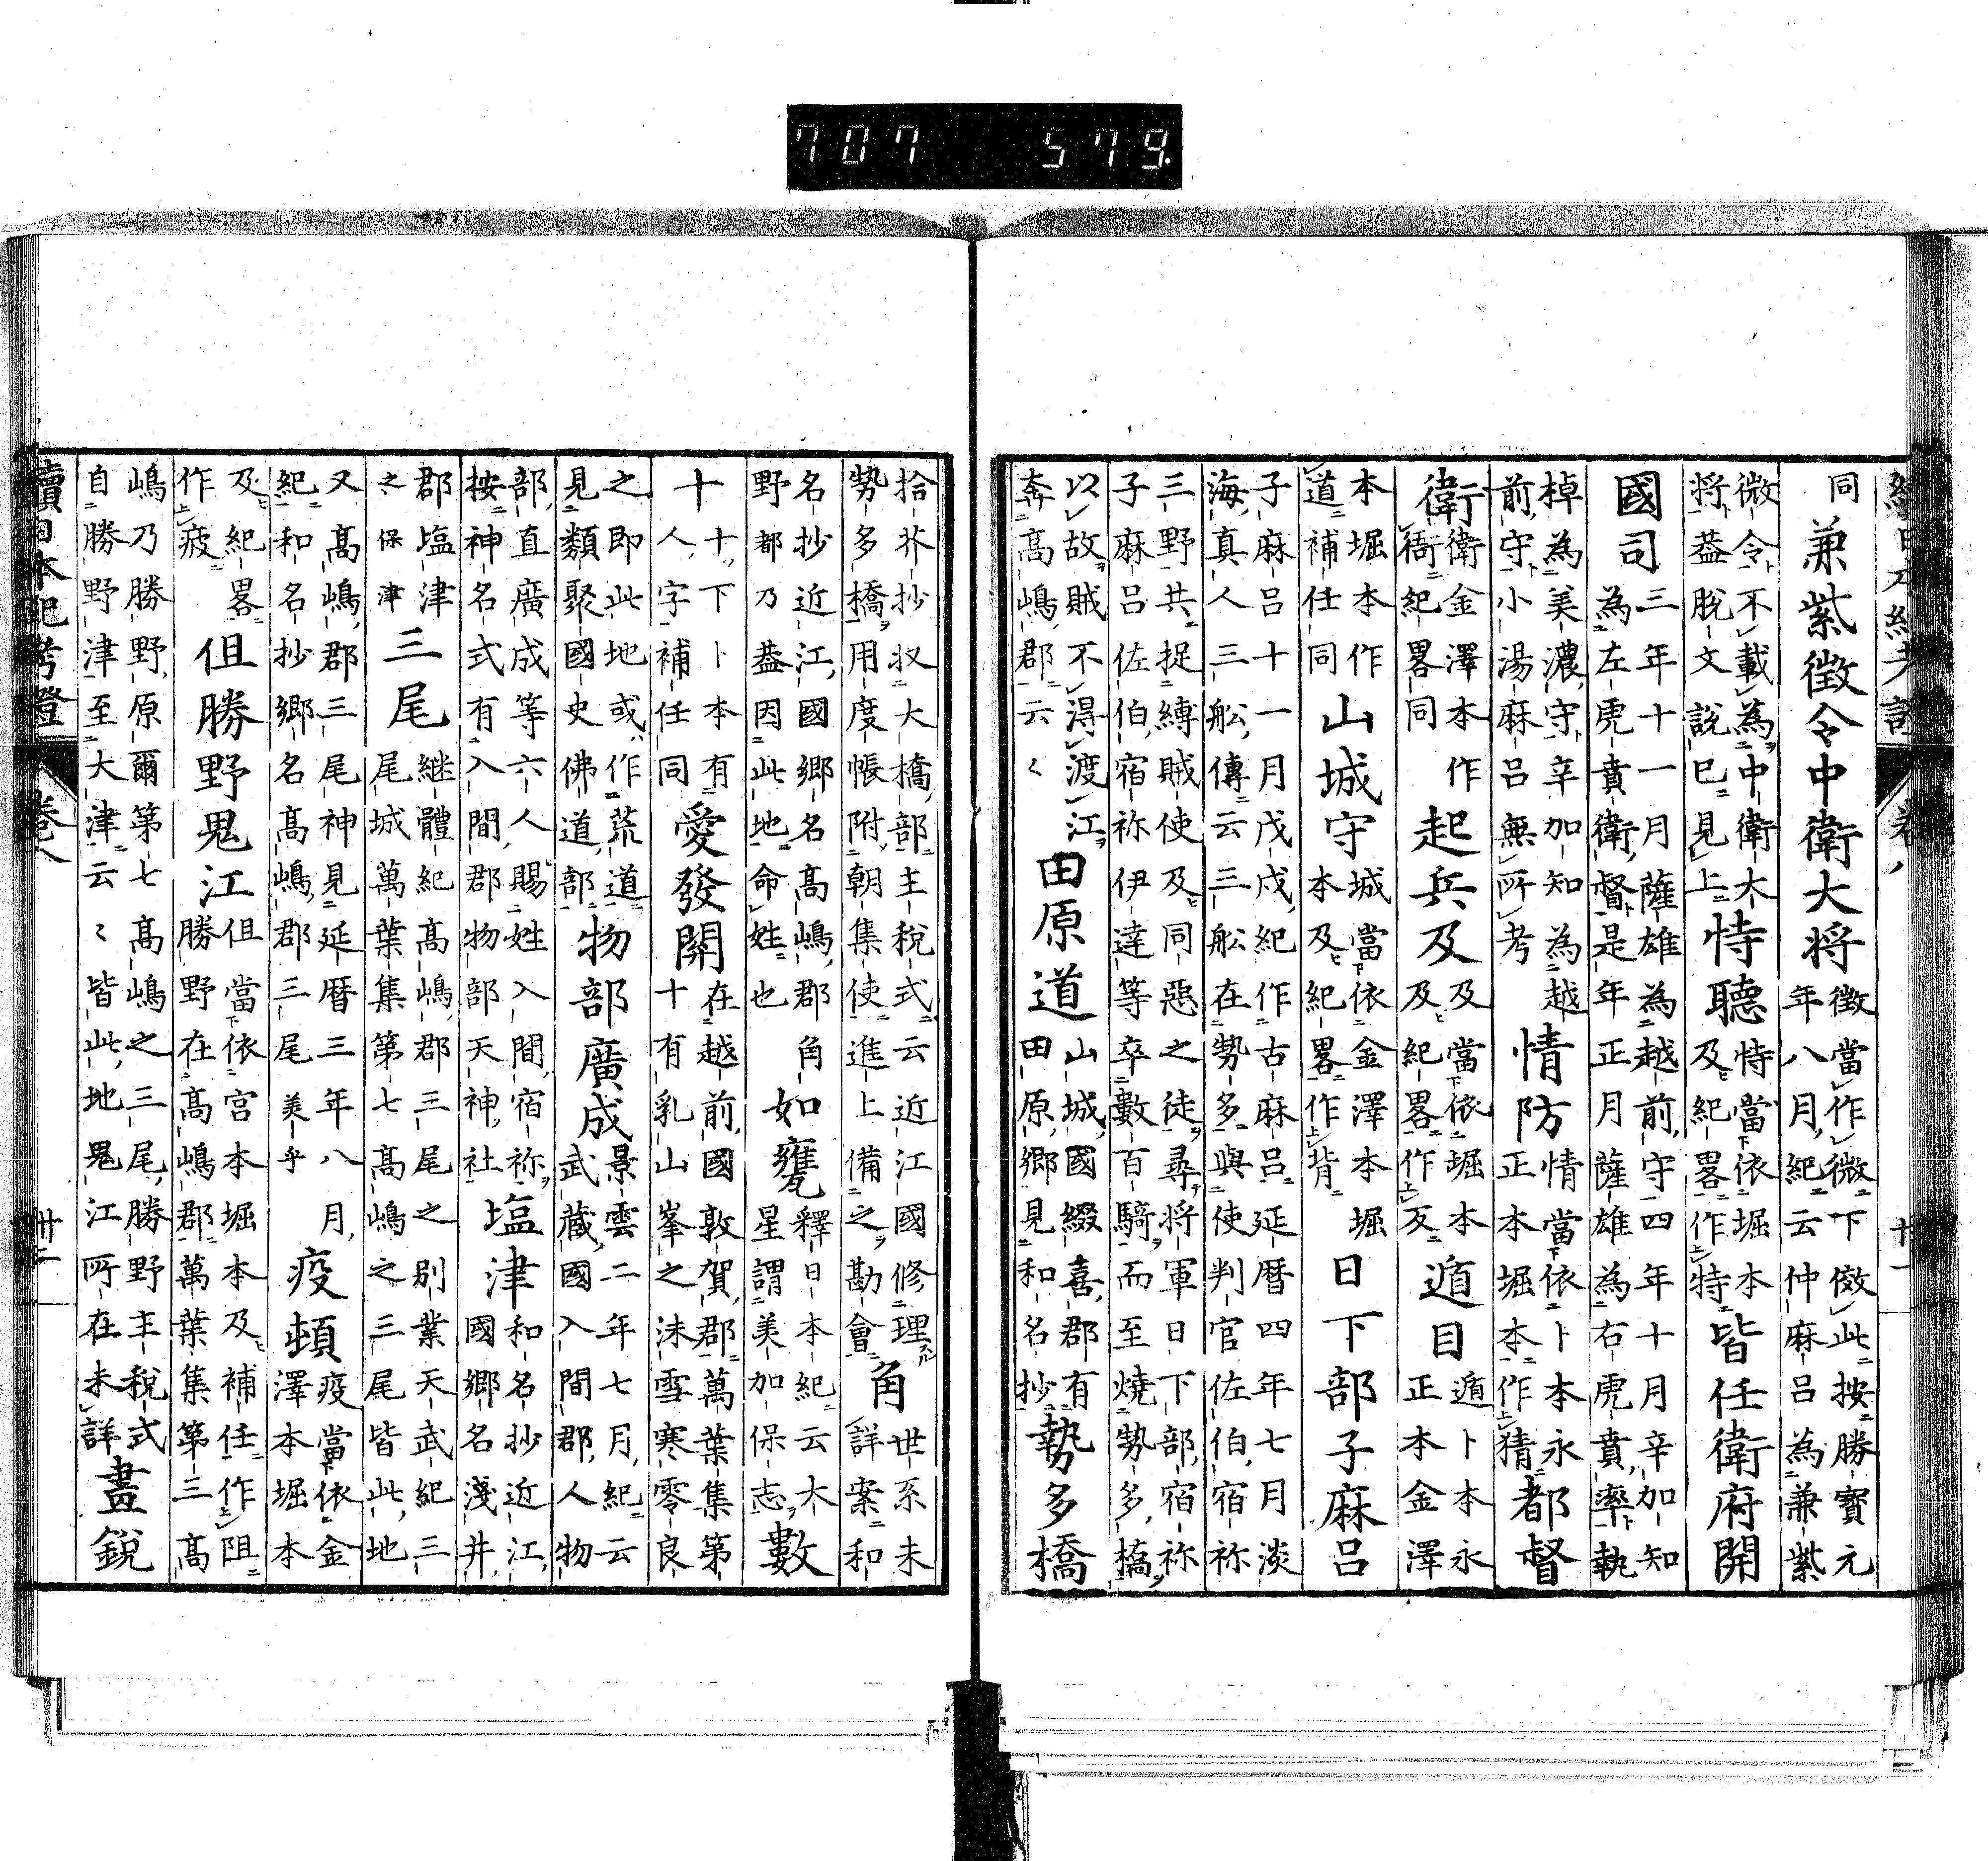 同
兼紫徴令中衛大将
徴當作微下傚此按勝寶元
年八月紀云仲麻呂為兼紫
微令不載為中衛大
将葢脫文説巳見上
恃聽
恃當依堀本
及紀畧作特
皆任衛府開
國司
三年十一月薩雄為越前守四年十月辛加知
為左虎賁衛督是年正月薩雄為右虎賁率執
棹為美濃守辛加知為越
前守小湯麻呂無所考
情防
情當依卜本永
正本堀本作猜
都督
衛
衛金澤本作
衙紀畧同
起兵及
及當依堀本
及紀畧作反
遁目
遁卜本永
正本金澤
本堀本作
道補任同
山城守
城當依金澤本堀
本及紀畧作背
日下部子麻呂
子麻呂十一月戊戌紀作古麻呂延暦四年七月淡
海真人三舩傳云三舩在勢多與使判官佐伯宿祢
三野共捉縛賊使及同惡之徒尋将軍日下部宿祢
子麻呂佐伯宿祢伊達等卒數百騎而至燒勢多橋
以故賊不得渡江
奔髙嶋郡云〻
田原道
山城國綴喜郡有
田原郷見和名抄
勢多橋
拾芥抄収大橋部主稅式云近江國修理
勢多橋用度帳附朝集使進上備之勘會
角
世系未
詳案和
名抄近江國郷名髙嶋郡角
野都乃葢因此地命姓也
如甕
釋日本紀云大
星謂美加保志
數
十
十下卜本有
人字補任同
愛發關
在越前國敦賀郡萬葉集第
十有乳山峯之沫雪寒零良
之即此地或作荒道
見類聚國史佛道部
物部廣成
景雲二年七月紀云
武藏國入間郡人物
部直廣成等六人賜姓入間宿祢
按神名式有入間郡物部天神社
塩津
和名抄近江
國郷名淺井
郡塩津
之保津
三尾
継體紀髙嶋郡三尾之別業天武紀三
尾城萬葉集第七髙嶋之三尾皆此地
又髙嶋郡三尾神見延暦三年八月
紀和名抄郷名髙嶋郡三尾美乎
疫頓
疫當依金
澤本堀本
及紀畧
作疲
伹勝野鬼江
伹當依宮本堀本及補任作阻
勝野在髙嶋郡萬葉集第三髙
嶋乃勝野原爾第七髙嶋之三尾勝野主稅式
自勝野津至大津云〻皆此地鬼江所在未詳
盡銳
續日本紀考證
卷八
707 579.